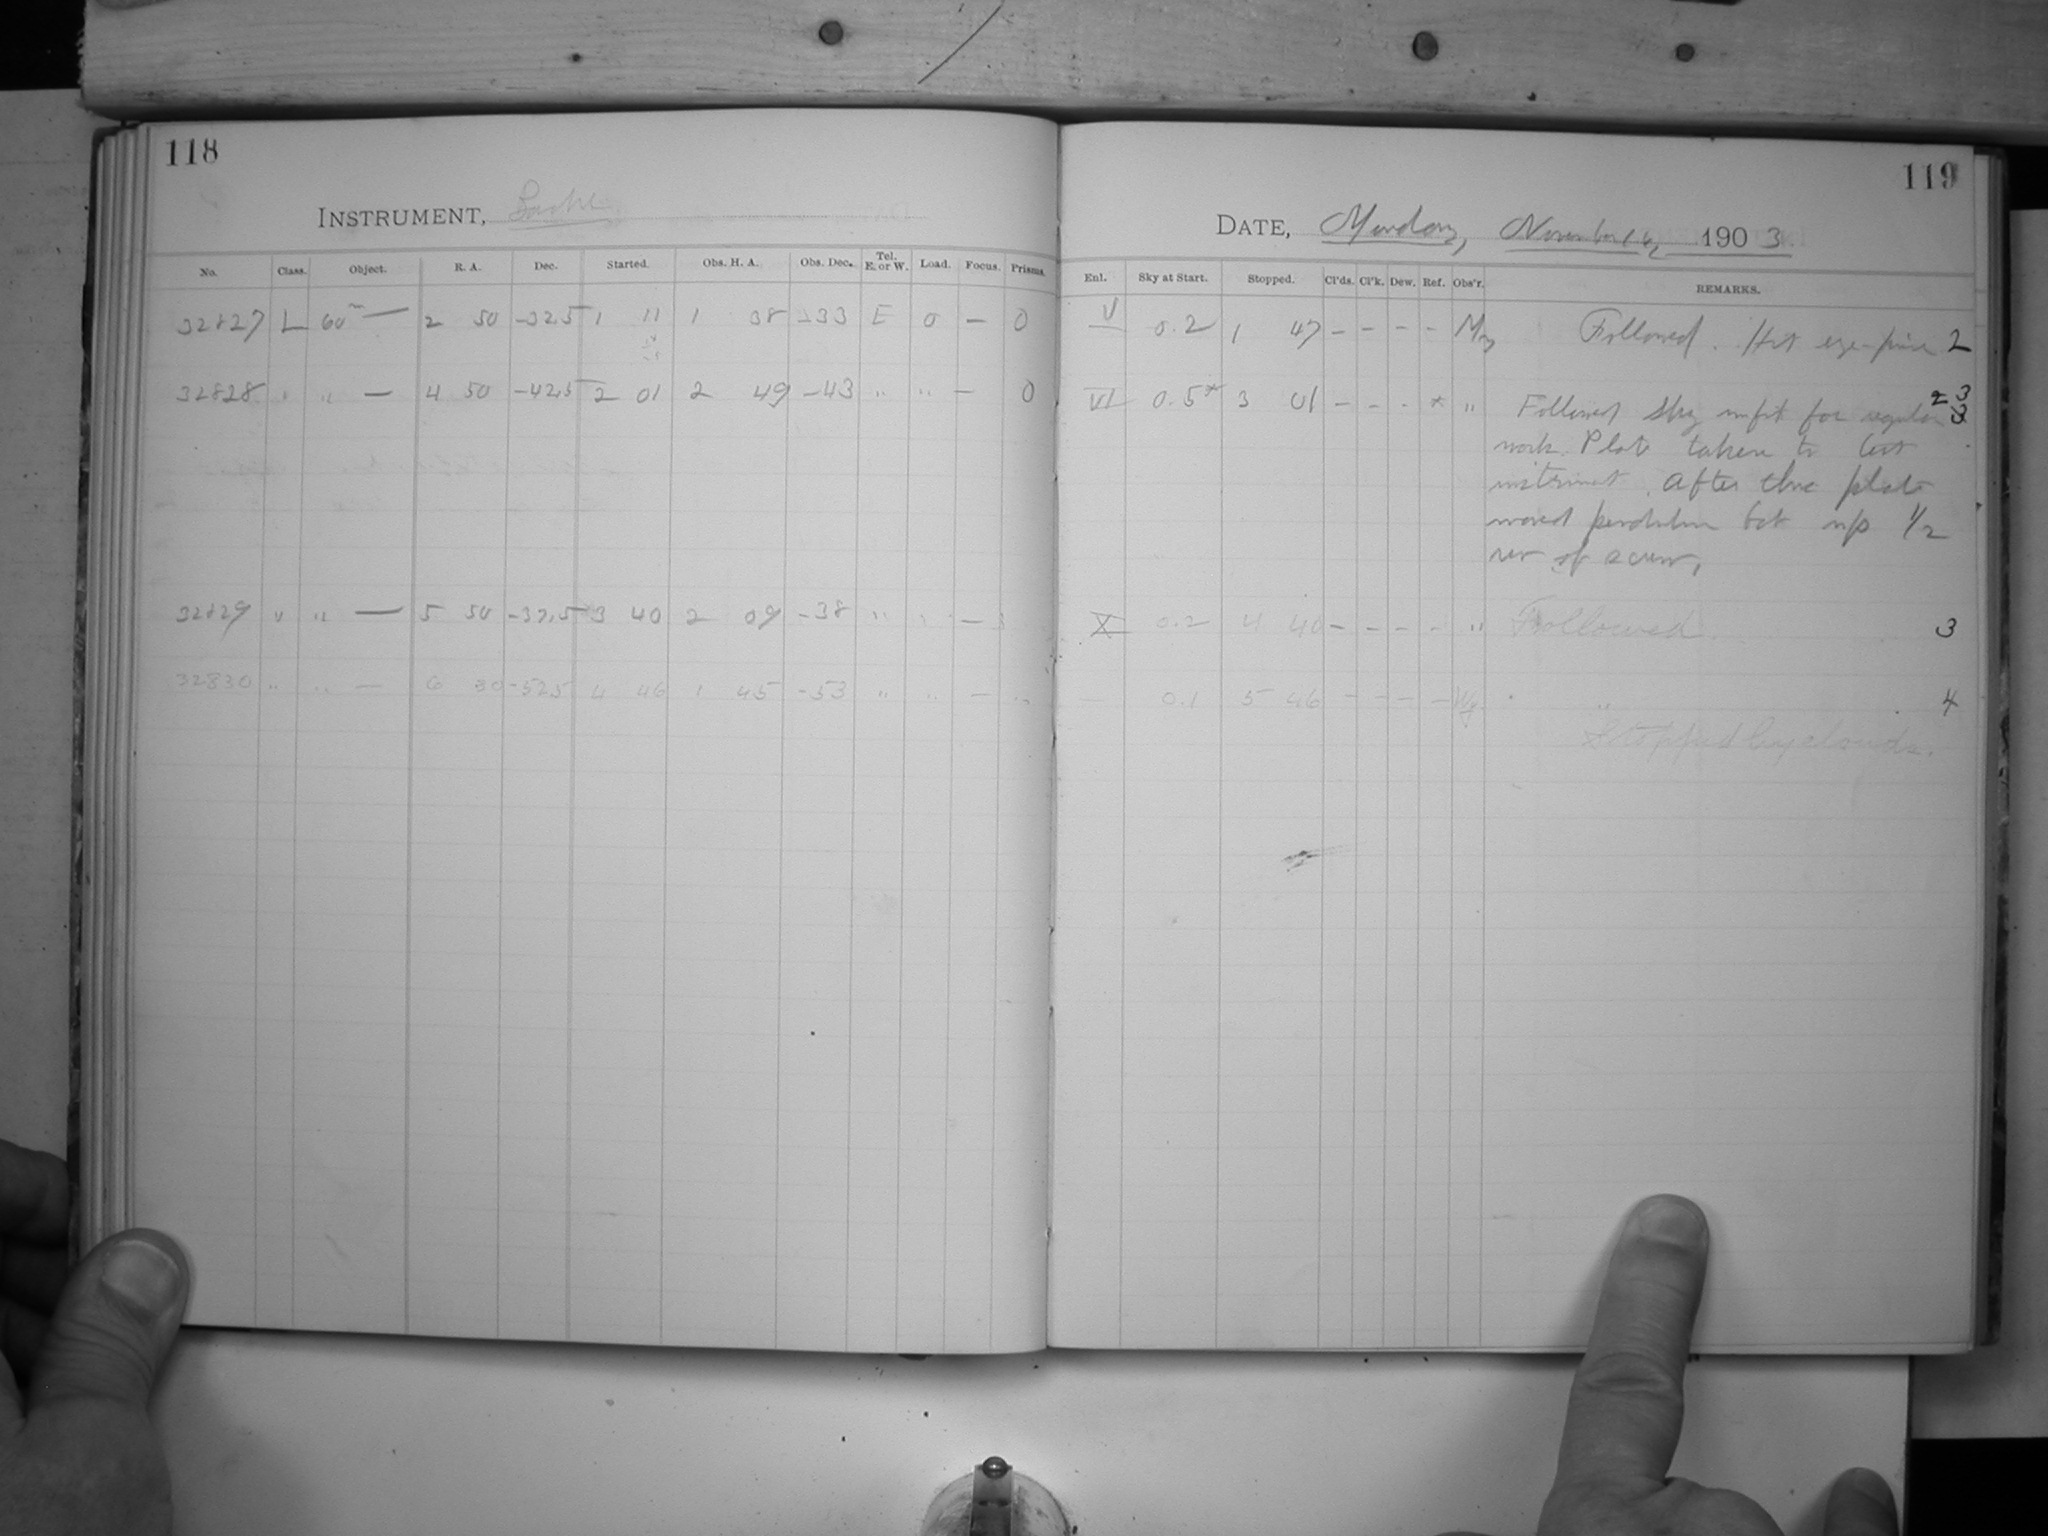 118
INSTRUMENT, Bache
No. Class. Object. R. A. Dec. Started. Obs. H. A. Obs. Dec. Tel. E. or W. Load. Focus. Prisms.
32827 L 60m — 2 50 -32.5 1 11 1 38 -33 E 0 — 0
32828 " " — 4 50 -42.5 2 01 2 49 -43 " " — 0
32829 " " — 5 50 -37.5 3 40 2 09 -38 " " —
32830 " " — 6 30 -52.5 4 46 1 45 -53 " " — "
119
DATE, Monday, November 16, 1903
Enl. Sky at Start. Stopped. Cl'ds. Cl'k. Dew. Ref. Obs'r. REMARKS.
V 0.2 1 47 – – – – Followed. Hit eye-piece 2
VI 0.5* 3 01 – – – * " Followed Sky unfit for regular 2 3
work. Plate taken to test 3
instrument. After this plate
moved pendulum bob up 1/2
rev of screw.
X 0.2 4 40 – – – – " Followed. 3
— 0.1 5 46 – – – – " 4
Stopped by clouds.